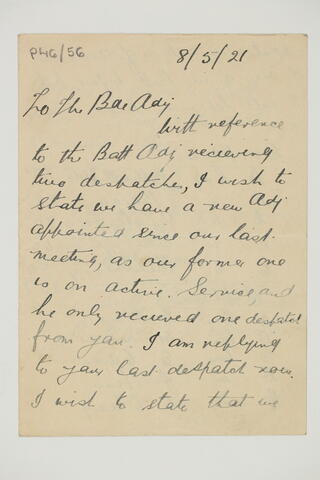 P46/56
8/5/21
To The Bde Adj
With reference
to the Batt Adj recieving
two despatches, I wish to
state we have a new Adj
appointed since our last
meeting, as our former one
is on active. Service, and
he only recieved one despatch
from you. I am replying
to your last despatch now.
I wish to state that we